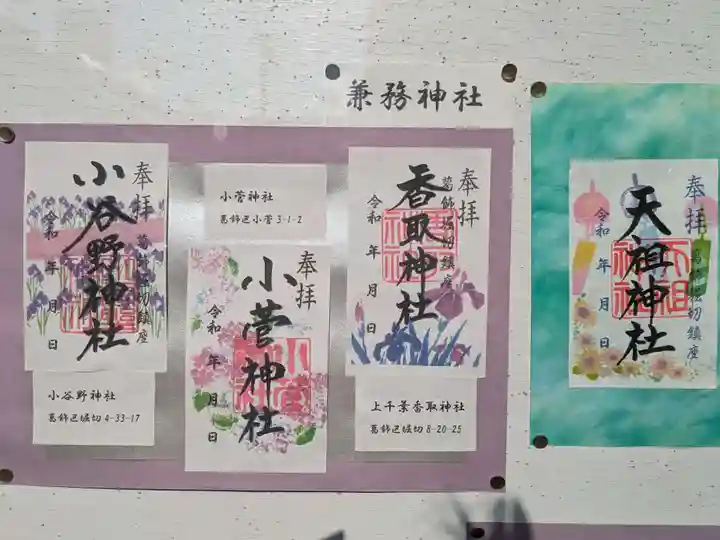 兼務神社
奉拝
葛飾堀切鎮座
小谷野神社
令和 年 月 日
小谷野神社
葛飾区堀切 4-33-17
小菅神社
葛飾区小菅 3-1-2
奉拝
小菅神社
令和 年 月 日
奉拝
葛飾堀切鎮座
香取神社
令和 年 月 日
上千葉香取神社
葛飾区堀切 8-20-25
奉拝
葛飾堀切鎮座
天祖神社
令和 年 月 日